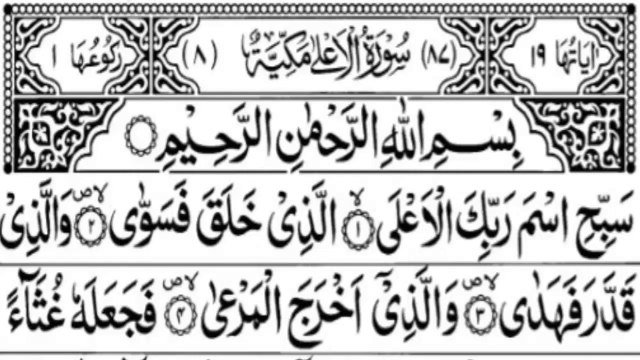 اٰيَاتُهَا ١٩ (٨٧) سُوْرَةُ الْاَعْلٰى مَكِّيَّةٌ (٨) رُكُوْعُهَا ١
بِسْمِ اللّٰهِ الرَّحْمٰنِ الرَّحِيْمِ
سَبِّحِ اسْمَ رَبِّكَ الْاَعْلَى ۙ﴿١﴾ الَّذِىْ خَلَقَ فَسَوّٰى ۪ۙ﴿٢﴾ وَالَّذِىْ
قَدَّرَ فَهَدٰى ۪ۙ﴿٣﴾ وَالَّذِىْۤ اَخْرَجَ الْمَرْعٰى ۪ۙ﴿٤﴾ فَجَعَلَهٗ غُثَآءً